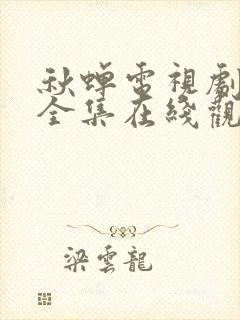 秋蝉電視劇
全集在綫觀
梁雲龍